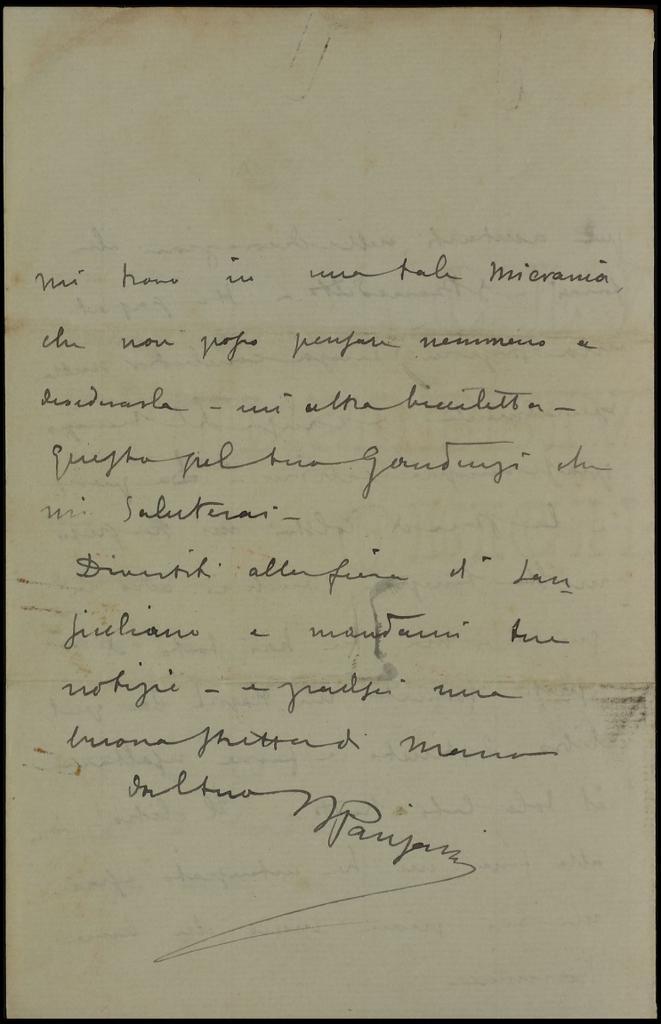 mi trovo in una tale micrania
che non posso pensare nemmeno a
desiderarla – un altra bicicletta –
Questo pel tuo Gaudenzi che
mi saluterai –
Divertiti alla fiera di San
giuliano e mandami tue
notizie – e gradisci una
buona stretta di mano
dal tuo
Panzani